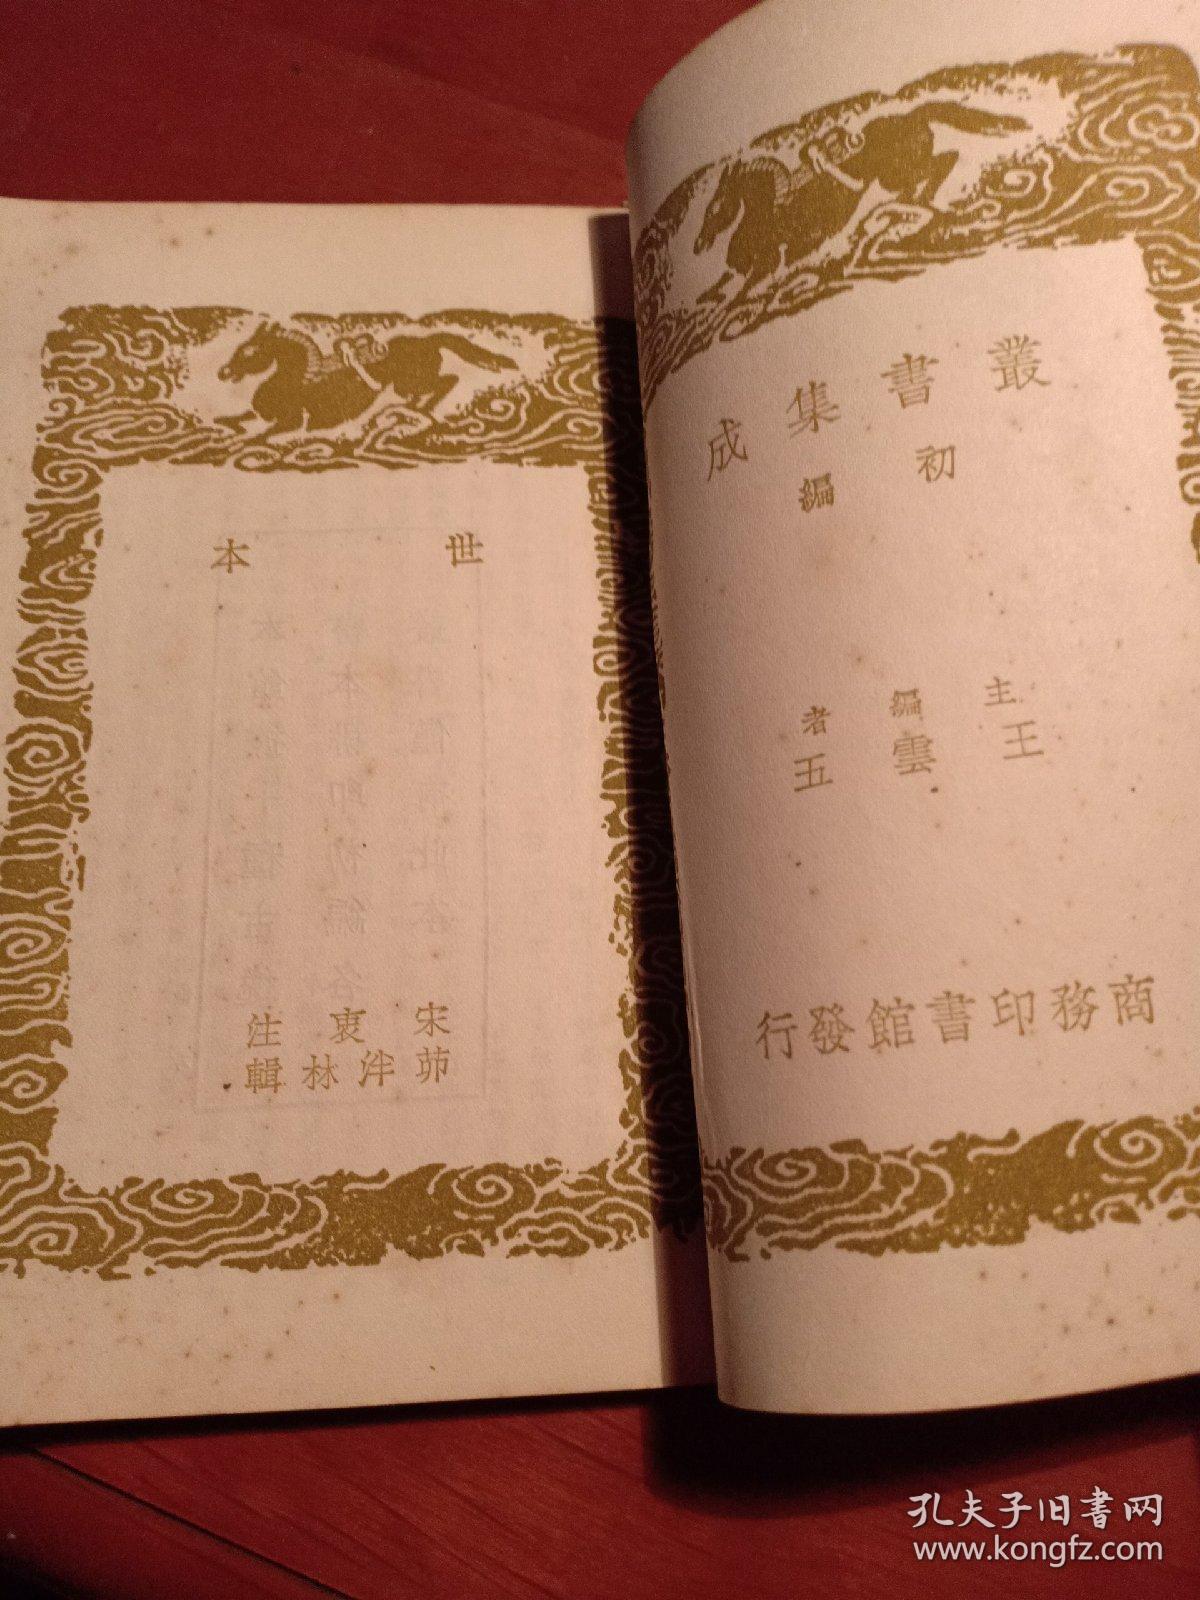 叢書集成
初編
主編者
王雲五
商務印書館發行
世本
宋衷注
茆泮林輯
孔夫子旧书网
www.kongfz.com